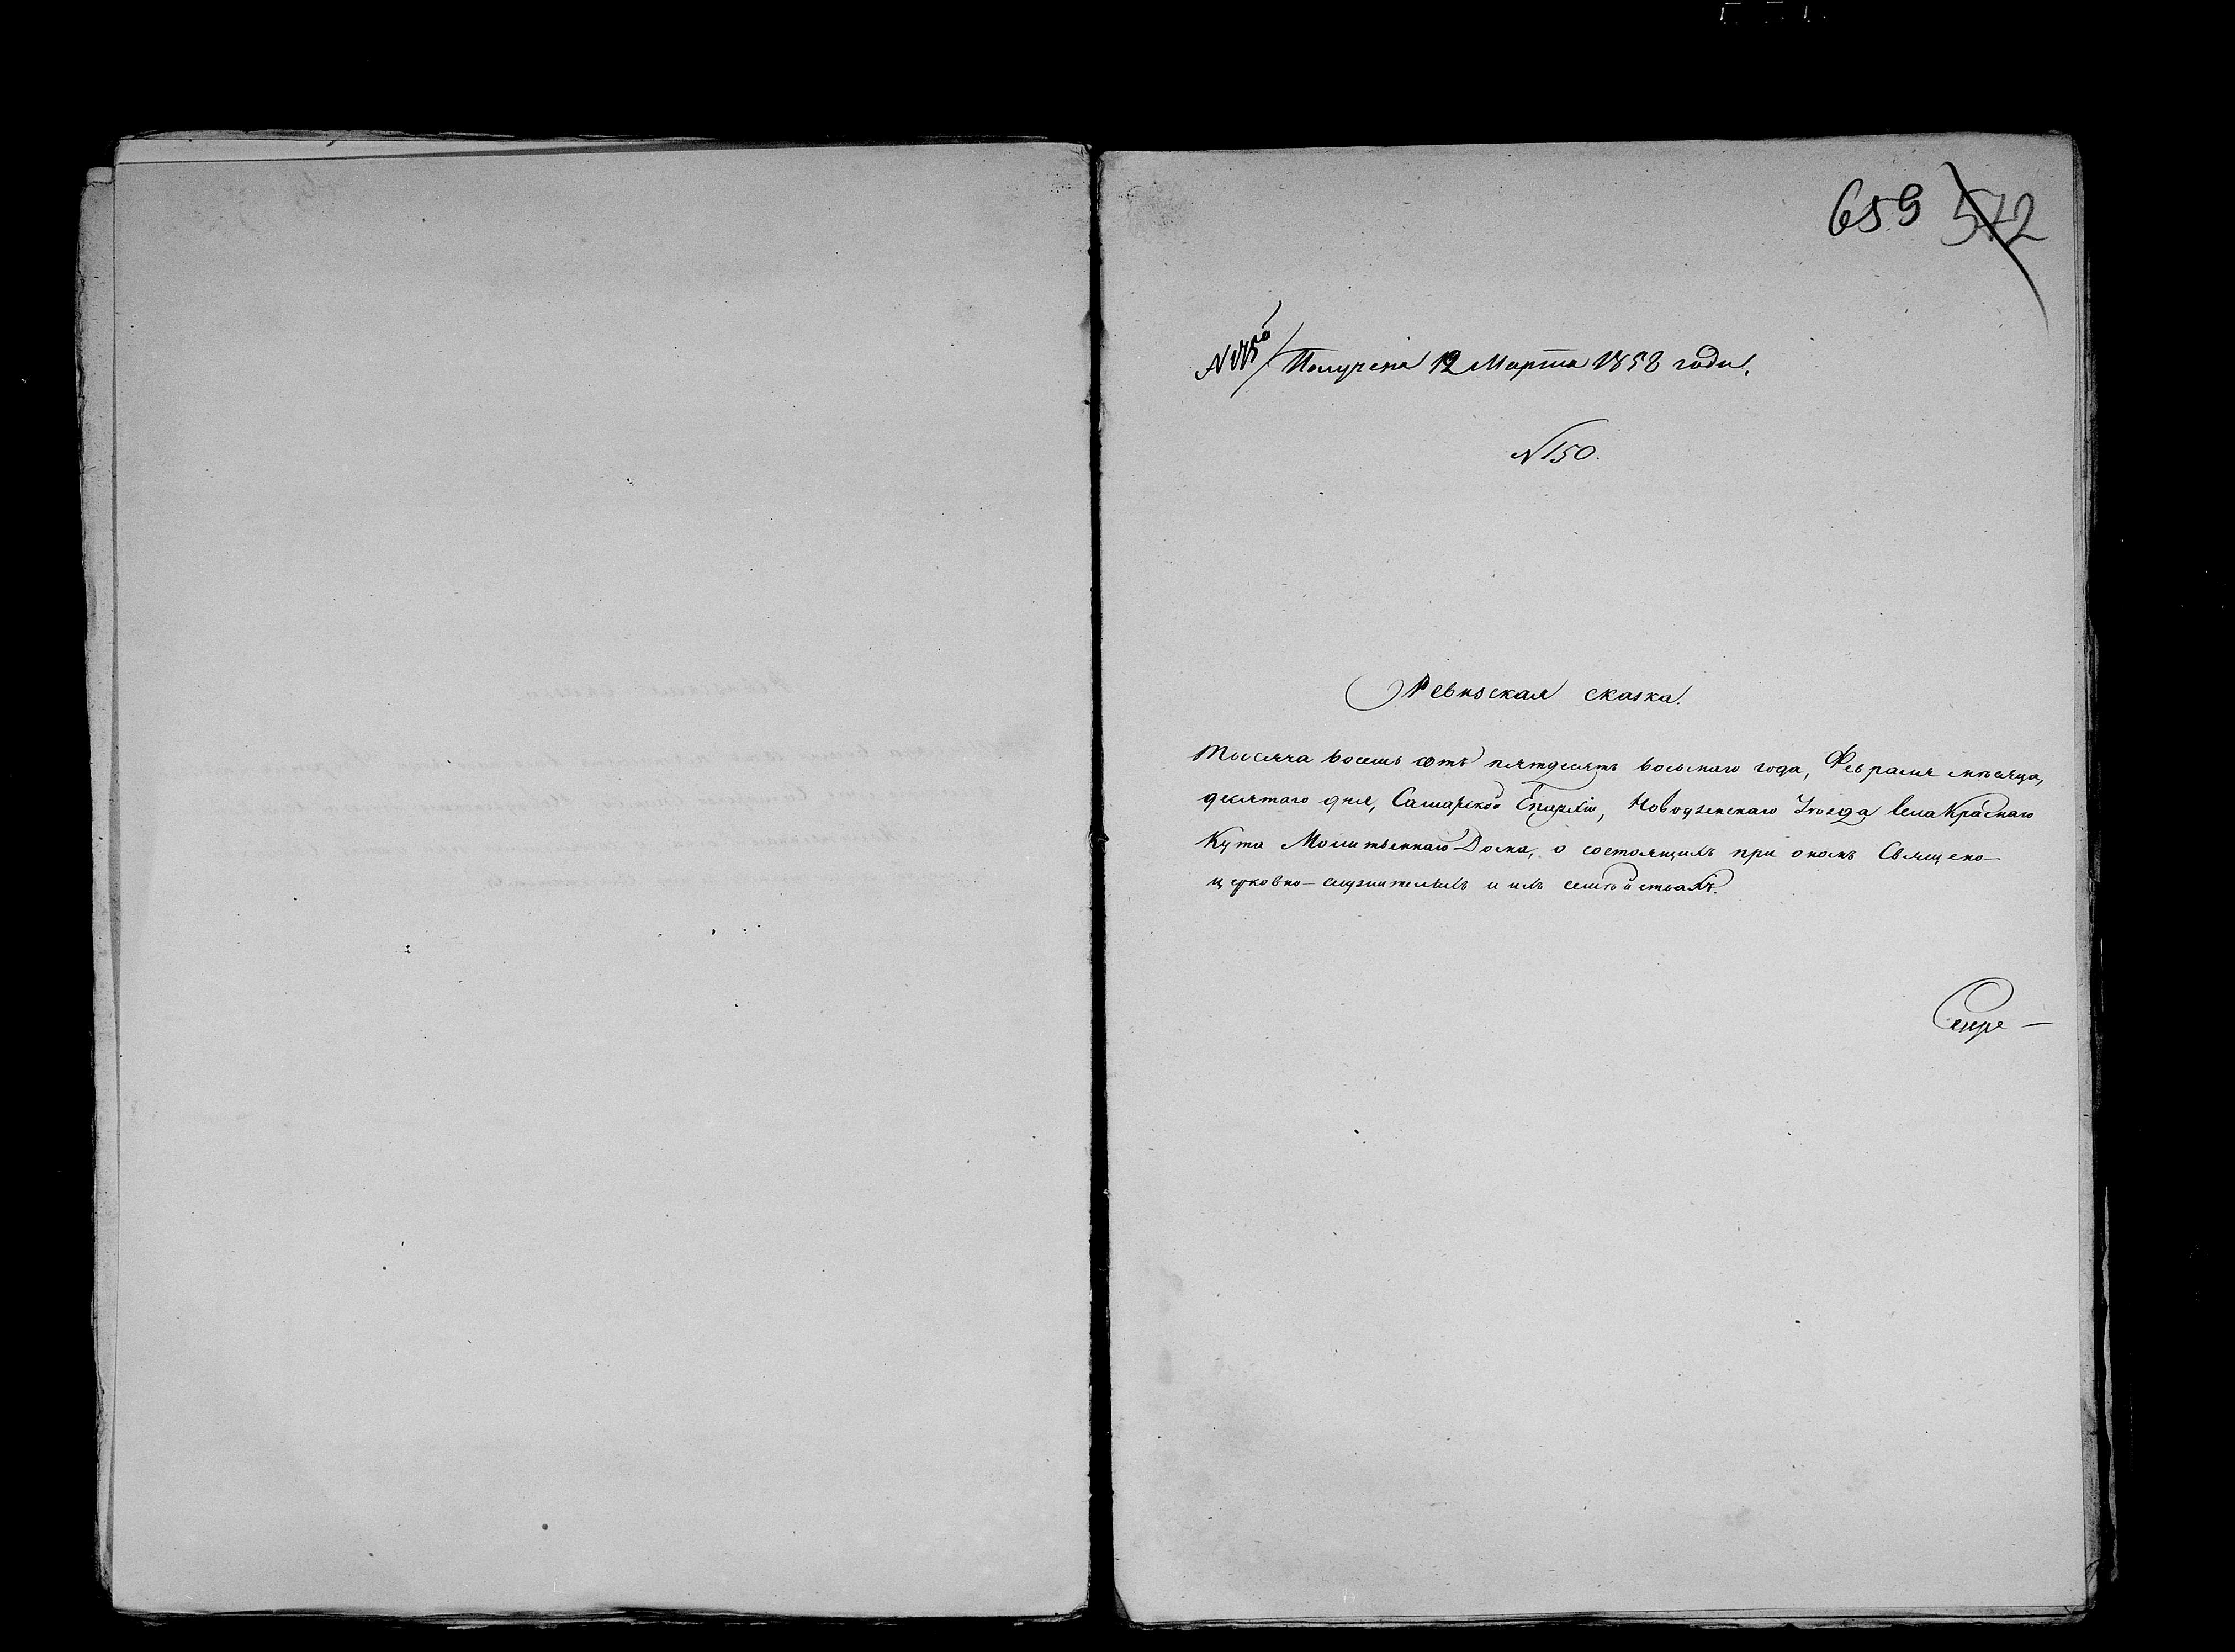 659 572
Получена 12 Марта 1858 года.
N 150.
Ревизская сказка.
Тысяча восемь сотъ пятдесятъ восьмаго года, Февраля мѣсяца,
десятаго дня, Самарской Епархіи, Новоузенскаго Уѣзда села Краснаго
Кута Молитвеннаго Дома, о состоящихъ при ономъ Священо-
церковно-служителяхъ и ихъ семѣйствахъ.